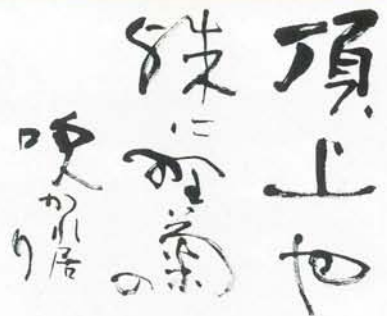 頂上や
殊に野菊の
吹かれ居り